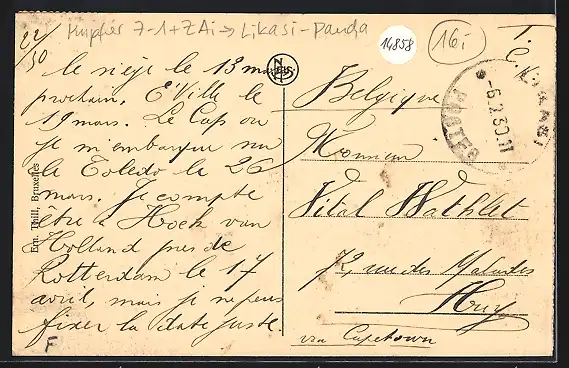 22/
30
Kupfer 7-1+ZAi→Likasi-Panda
14858
16i
le siège le 13 mars
prochain. E'Ville le
19 mars. Le Cap ou
je m'embarque sur
le Toledo le 26
mars. Je compte
être à Hoek van
Holland près de
Rotterdam le 17
avril, mais je ne peux
fixer la date juste.
Ern. Thill, Bruxelles
NELS
Belgique
Monsieur
Vital Wathlet
72 rue des Malades
Huy
via Capetown
POSTES
-6.2.30.11
F